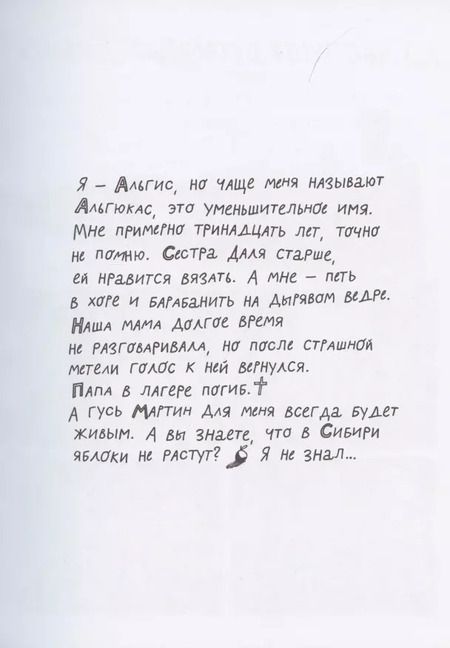 Я – Альгис, но чаще меня называют
Альгюкас, это уменьшительное имя.
Мне примерно тринадцать лет, точно
не помню. Сестра Даля старше,
ей нравится вязать. А мне – петь
в хоре и барабанить на дырявом ведре.
Наша мама долгое время
не разговаривала, но после страшной
метели голос к ней вернулся.
Папа в лагере погиб.✝
А гусь Мартин для меня всегда будет
живым. А вы знаете, что в Сибири
яблоки не растут? Я не знал...